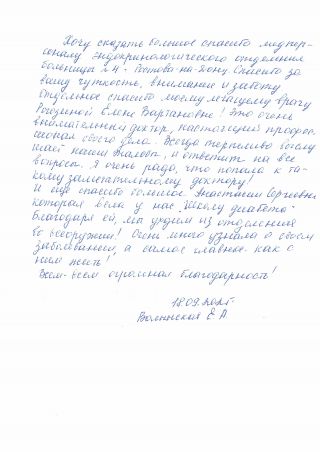 Хочу сказать большое спасибо медпер-
соналу эндокринологического отделения
больницы №4 г. Ростова-на-Дону. Спасибо за
вашу чуткость, внимание и заботу
Отдельное спасибо моему лечащему врачу
Елене Вартановне! Это очень
внимательный доктор, настоящий професс
ионал своего дела. Всегда терпеливо выслу
шает наши жалобы, и ответит на все
вопросы. Я очень рада, что попала к та-
кому замечательному доктору!
И ещё спасибо большое Анастасии Сергеевне
которая вела у нас Школу диабета
Благодаря ей, мы уходим из отделения
во всеоружии! Очень много узнала о своем
заболевании, а самое главное как с
ним жить!
Всем-всем огромная благодарность!
18.09.2024г
Волынская Е.А.